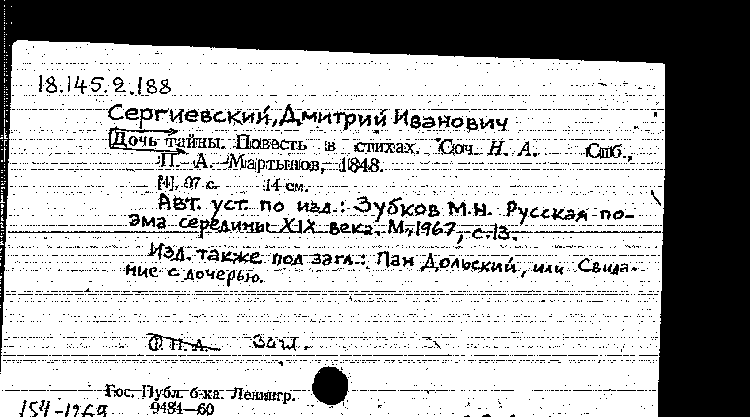 18.145.2.188
Сергиевский, Дмитрий Иванович
Дочь тайны. Повесть в стихах. Соч. Н. А. Спб.,
П. А. Мартынов, 1848.
[4], 97 с. 14 см.
Авт. уст. по изд.: Зубков М.Н. Русская по-
эма середины XIX века. М., 1967, с.13.
Изд. также под загл.: Пан Дольский, или Свида-
ние с дочерью.
Загл.
Гос. Публ. б-ка. Ленингр.
154-1969 9484—60